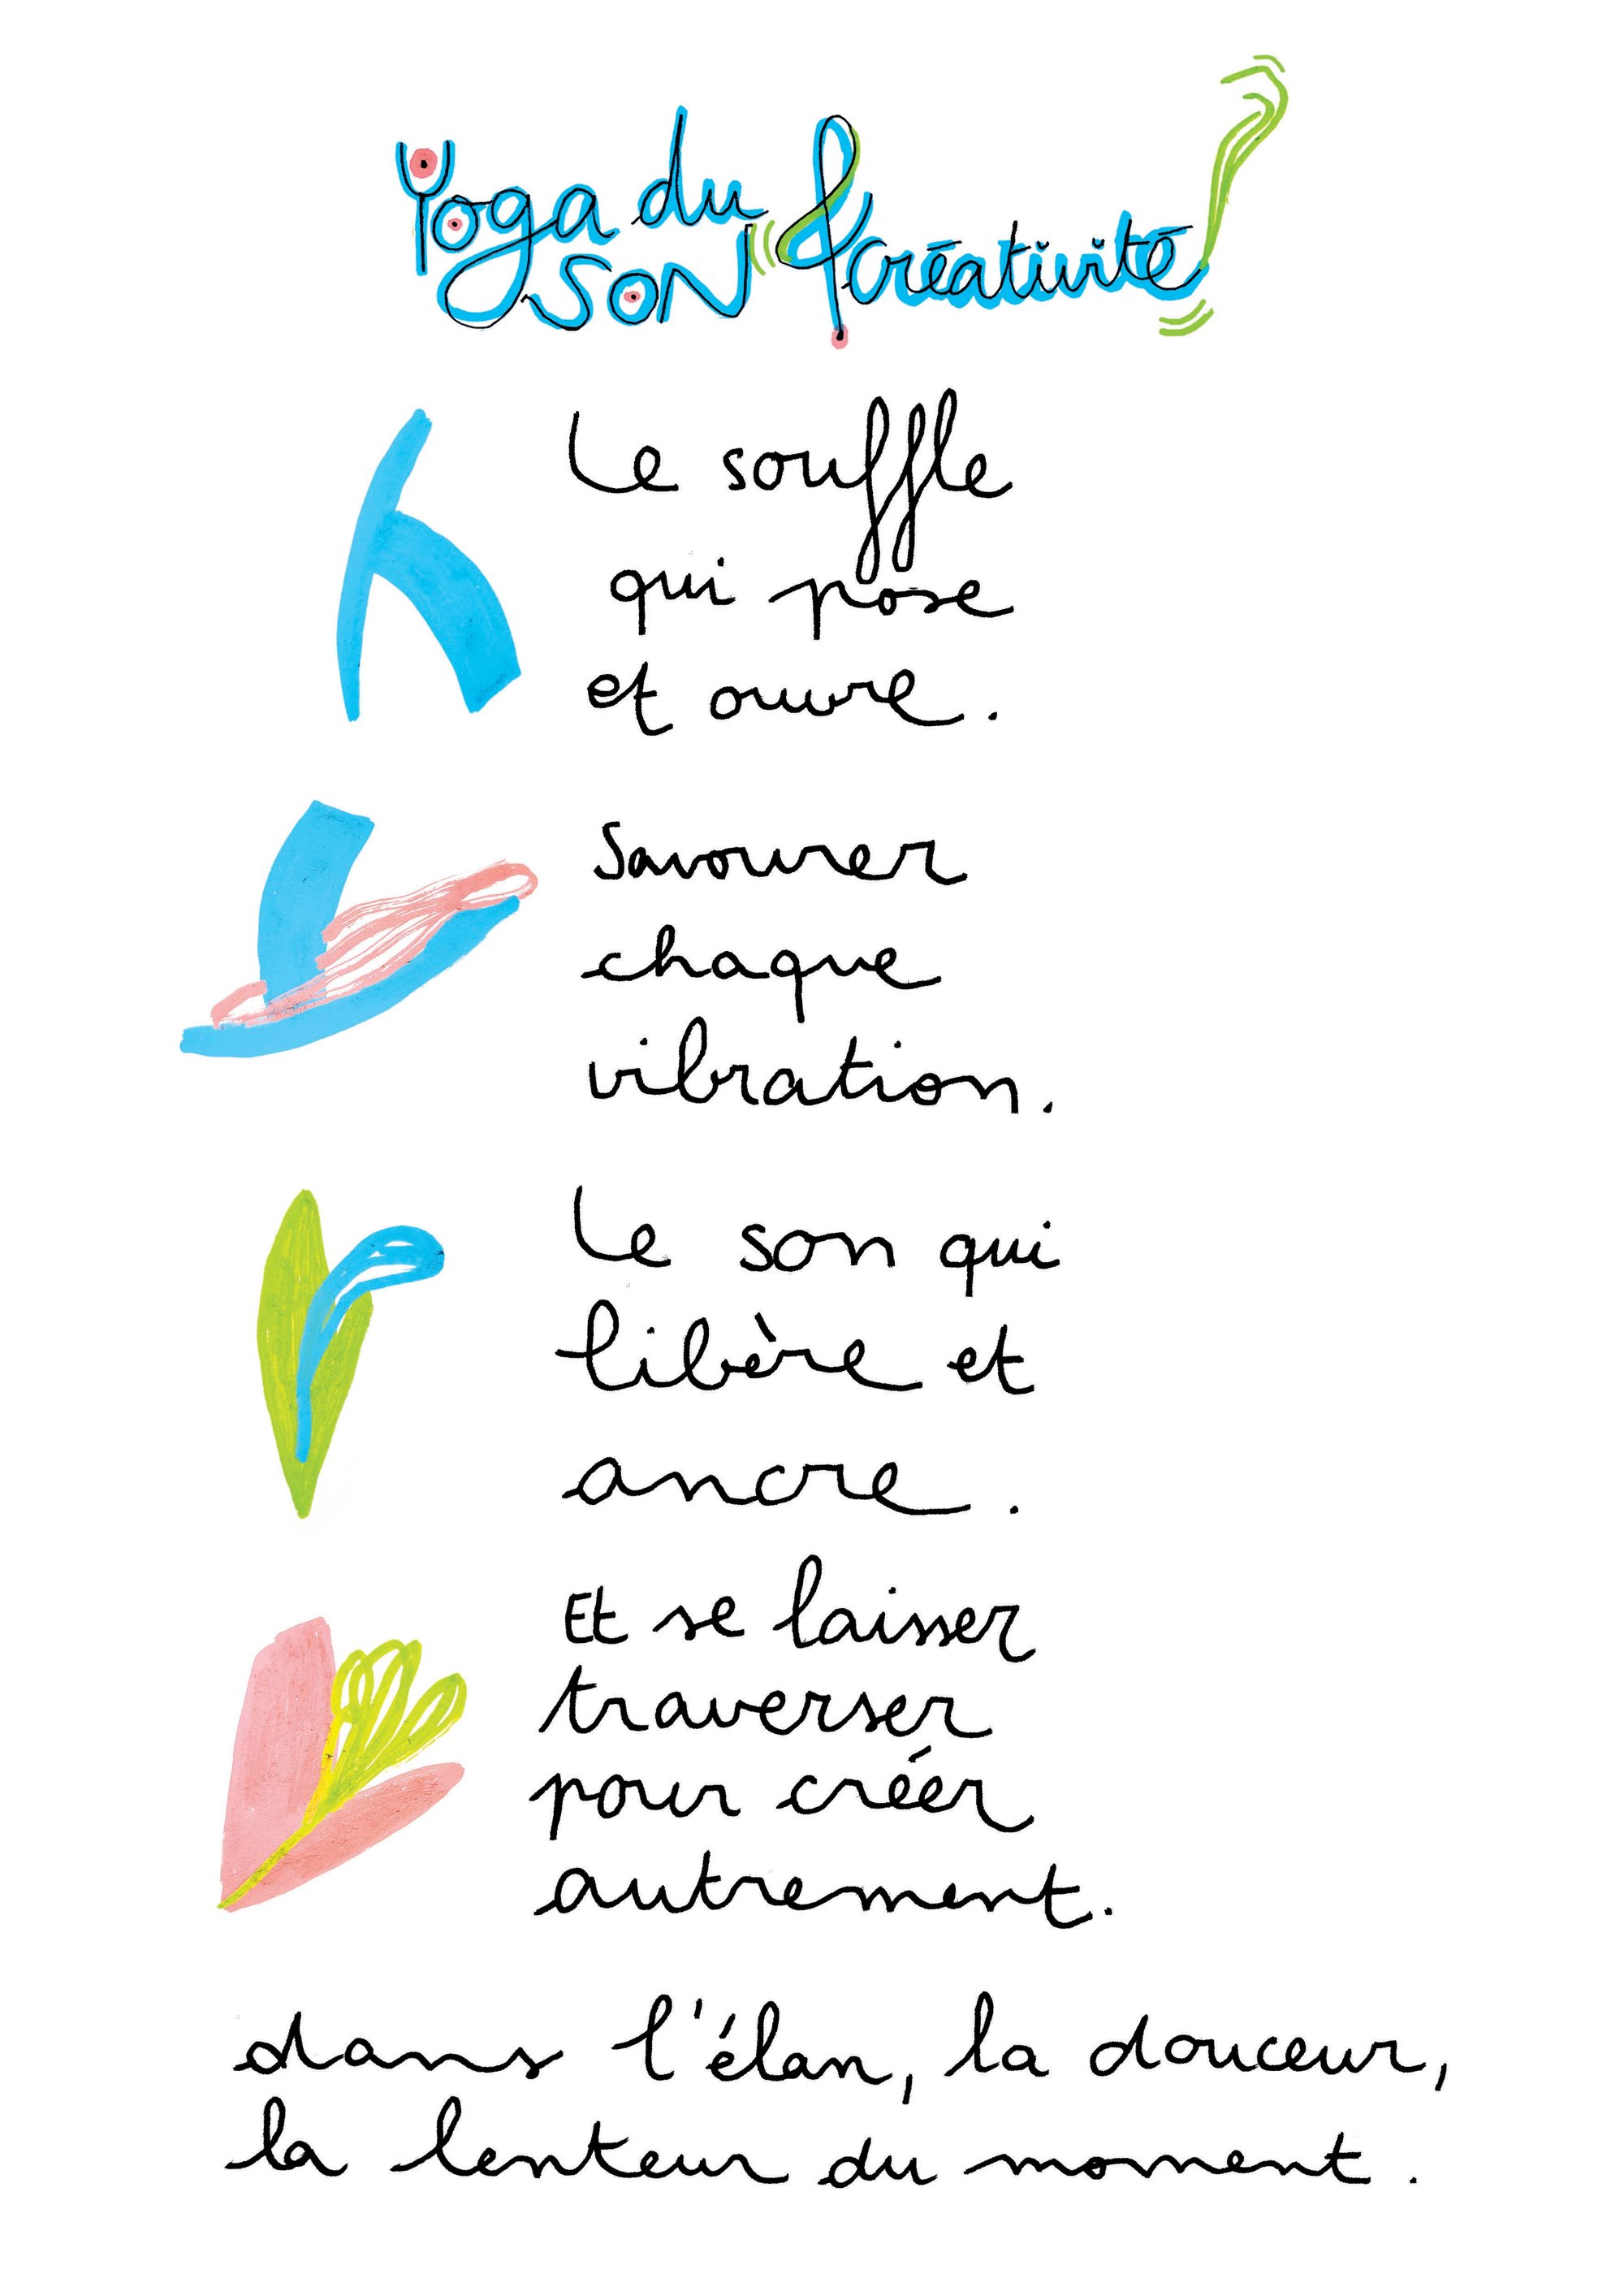 Yoga du
SON & créativité
Le souffle
qui pose
et ouvre.
Savourer
chaque
vibration.
Le son qui
libère et
ancre.
Et se laisser
traverser
pour créer
autrement.
dans l'élan, la douceur,
la lenteur du moment.